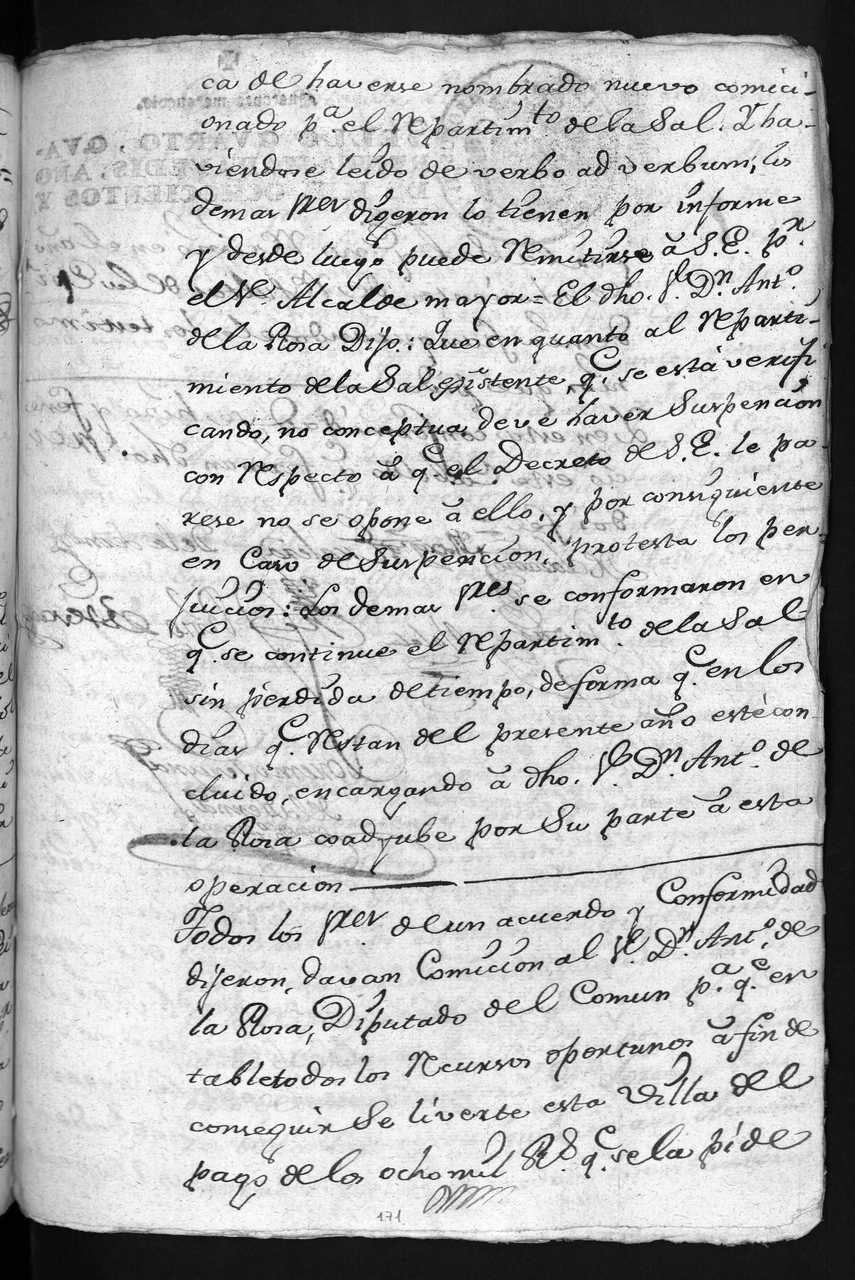 ca de haverse nombrado nuevo comici-
onado p.ª el Repartim.to de la Sal. Y ha-
viendose leido de verbo ad verbum, los
demas s.res digeron lo tienen por informe
y desde luego puede Remitirse â S. E. p.r
el S.r Alcalde mayor = El dho. S.r D.n Ant.º
de la Rosa Dijo: Que en quanto al Reparti-
miento de la Sal existente q.e se está verifi
cando, no conceptua deve haver Suspencion
con Respecto â q.e el Decreto de S. E. le pa-
rese no se opone â ello, y por consiguiente
en Caso de Suspencion, protesta los per-
juicios: Los demas s.res se conformaron en
q.e se continue el Repartim.to de la Sal
sin perdida de tiempo, de forma q.e en los
dias q.e Restan del presente año esté con-
cluido, encargando â dho. S.r D.n Ant.º de
la Rosa coadyube por Su parte â esta
operacion
Todos los s.res de un acuerdo y Conformidad
dijeron, davan Comicion al S.r D.n Ant.º de
la Rosa, Diputado del Comun p.ª q.e en
table todos los Recursos oportunos â fin de
conseguir Se liverte esta Villa del
pago de los ocho mil R.s q.e se la pide
171